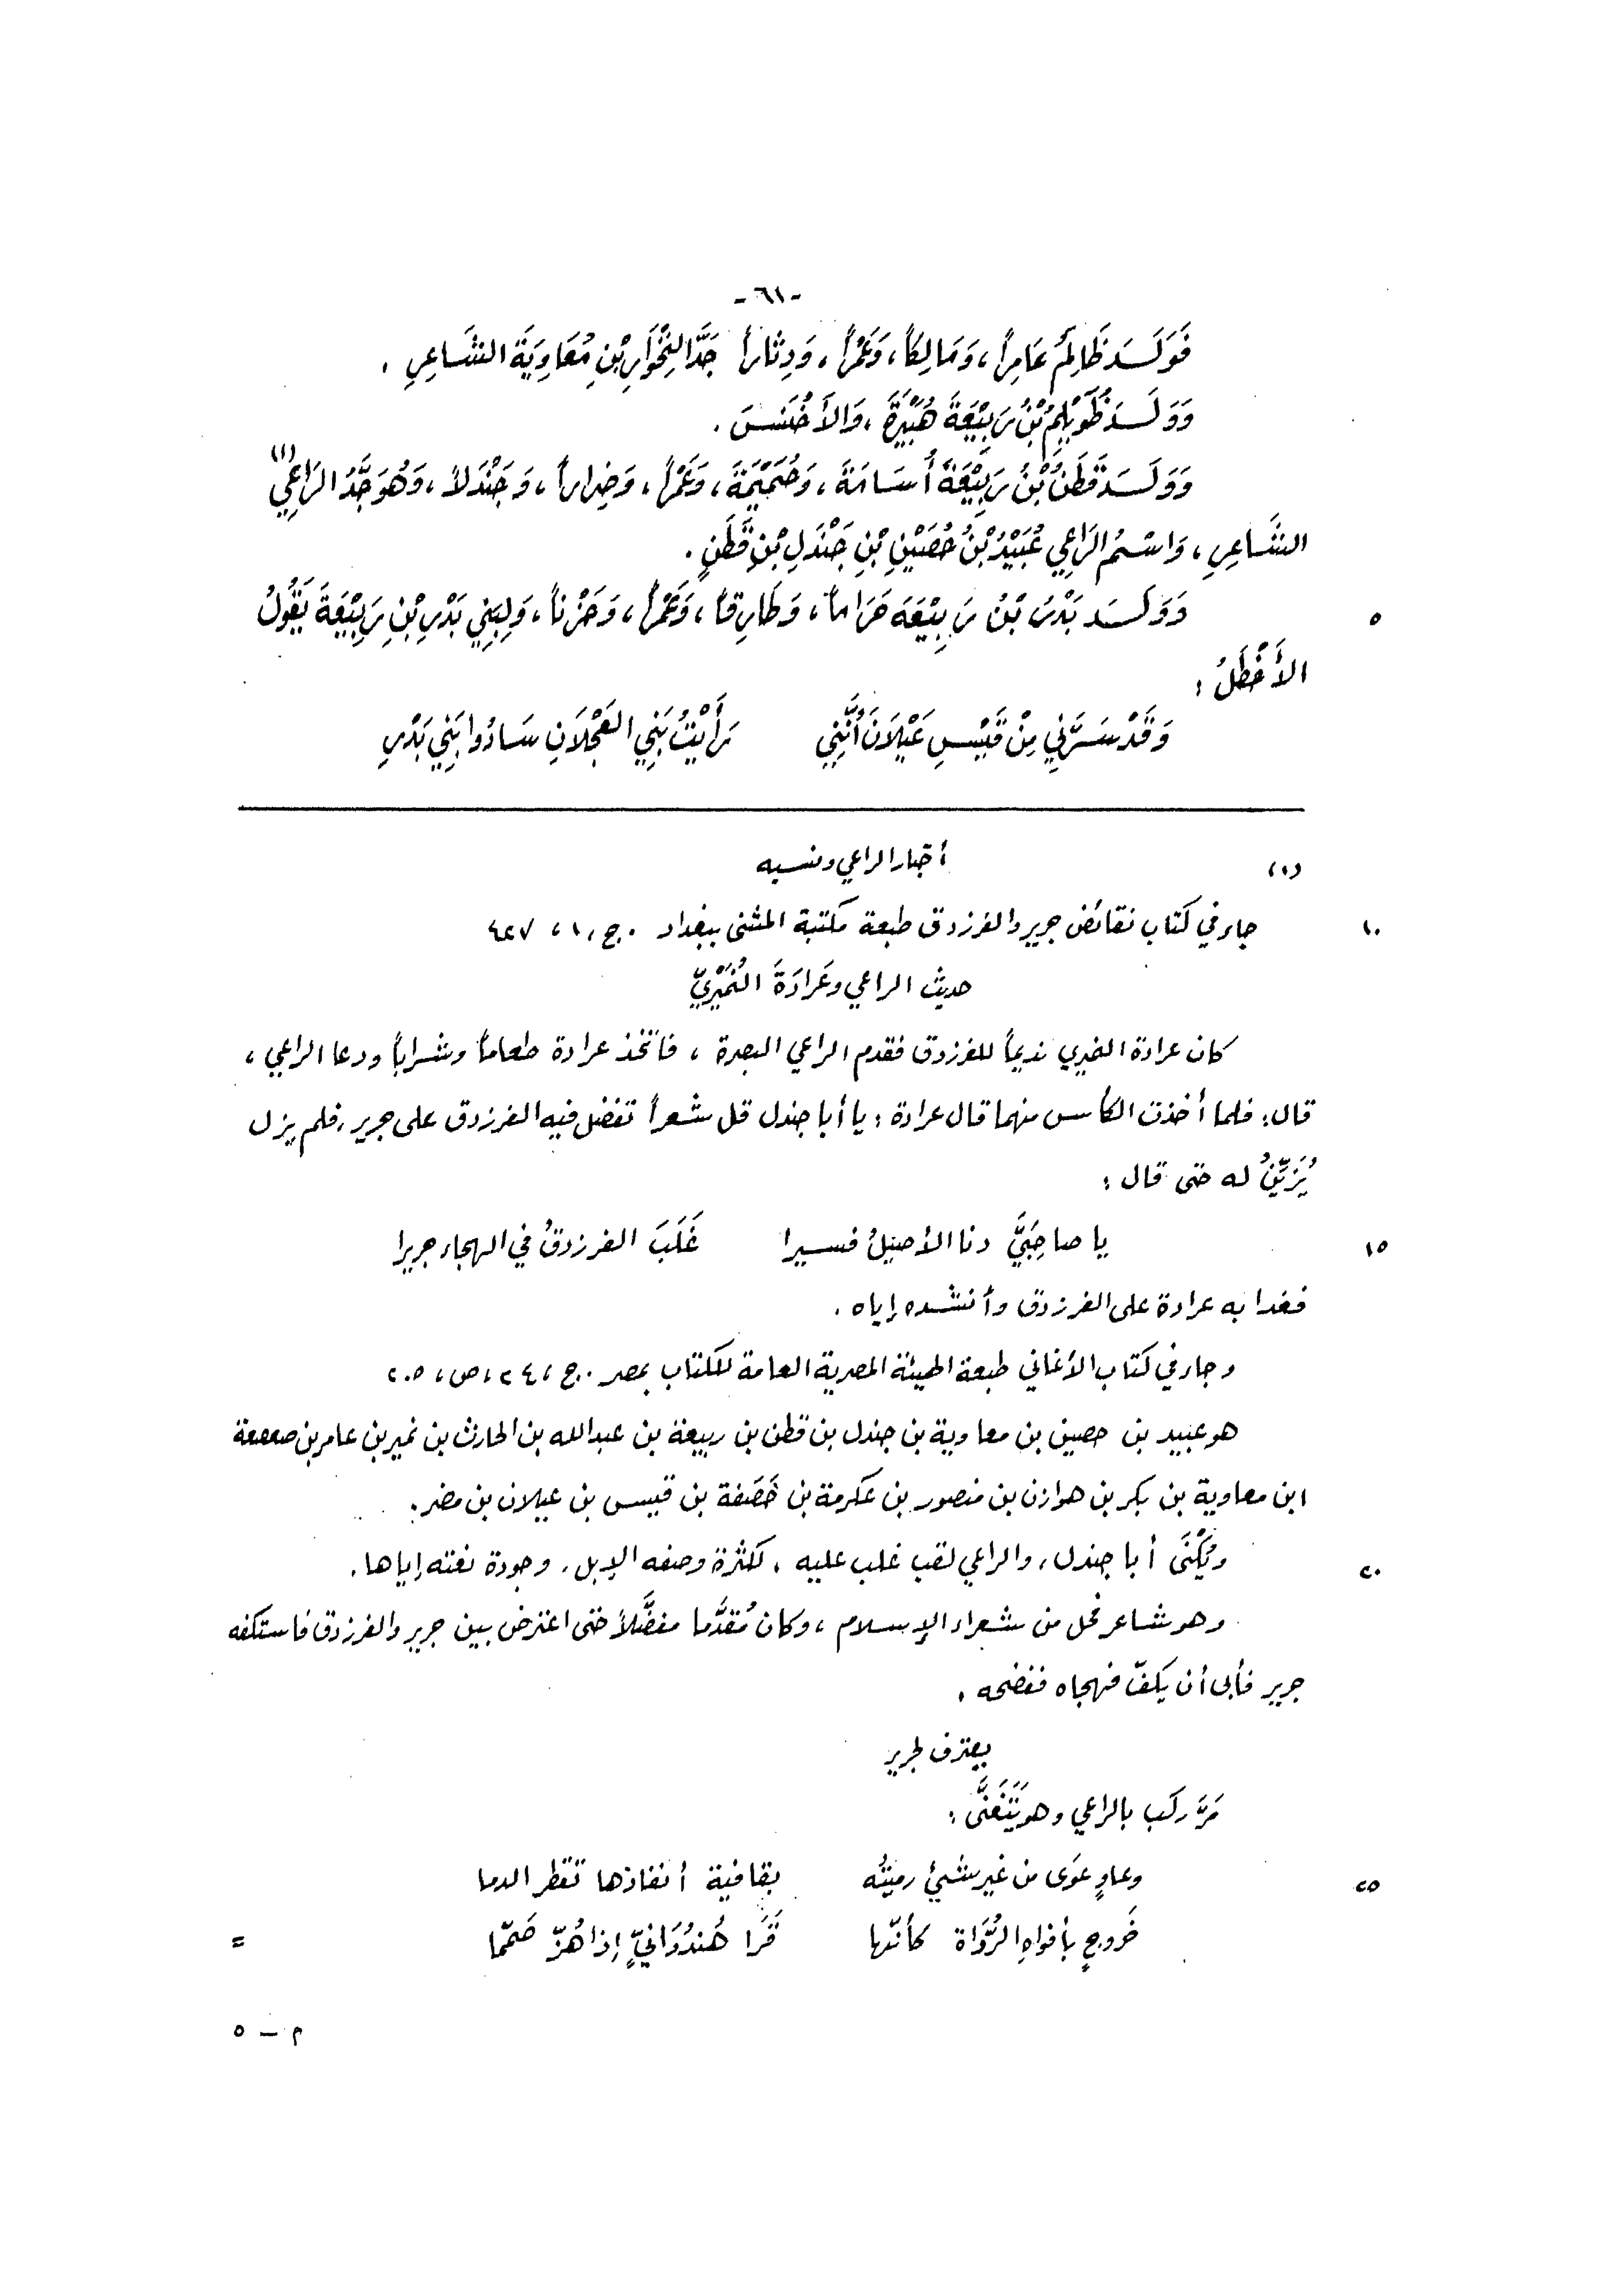 -٦١-
فَوَلَـدَ ظَالِمُ عَامِراً، وَمَالِكاً، وَعَمْراً، وَدِثَاراً جَدَّ النِّخْوَارِ بْنِ مُعَاوِيَةَ الشَّاعِرِ .
وَوَلَـدَ ظُوَيْلِمُ بْنُ رَبِيْعَةَ هُبَيْرَةَ، وَالأَخْنَسَ .
وَوَلَـدَ قَطَنُ بْنُ رَبِيْعَةَ أُسَامَةَ، وَحُمَيْمَةَ، وَعَمْراً، وَضِراراً، وَجَنْدَلاً، وَهُوَ جَدُّ الرَاعِي (١)
الشَّاعِرِ، وَاسْمُ الرَاعِي عُبَيْدُ بْنُ حُصَيْنِ بْنِ جَنْدَلِ بْنِ قَطَنٍ .
٥ وَوَلَـدَ بَدْرُ بْنُ رَبِيْعَةَ حَرَاماً، وَطَارِقاً، وَعَمْراً، وَحَزْناً، وَلِبَنِي بَدْرِ بْنِ رَبِيْعَةَ يَقُولُ
الأَخْطَلُ :
وَقَدْ سَرَّنِي مِنْ قَيْسِ عَيْلَانَ أَنَّنِي رَأَيْتُ بَنِي العَجْلَانِ سَادُوا بَنِي بَدْرِ
(١) أخبار الراعي ونسبه
١٠ جاء في كتاب نقائض جرير والفرزدق طبعة مكتبة المثنى ببغداد . ج، ١، ٤٢٧
حديث الراعي وعَرادَةَ النُمَيْرِيّ
كان عرادة النميري نديماً للفرزدق فقدم الراعي البصرة ، فاتخذ عرادة طعاماً وشراباً ودعا الراعي ،
قال: فلما أخذت الكأس منهما قال عرادة : يا أبا جندل قل شعراً تفضل فيه الفرزدق على جرير، فلم يزل
يُزَيِّنُ له حتى قال :
١٥ يا صاحِبَيَّ دنا الأصيلُ فسيرا غَلَبَ الفرزدقُ في الهجاء جريرا
فغدا به عرادة على الفرزدق وأنشده إياه .
وجاء في كتاب الأغاني طبعة الهيئة المصرية العامة للكتاب بمصر . ج، ٢٤، ص، ٢٠٥
هو عبيد بن حصين بن معاوية بن جندل بن قطن بن ربيعة بن عبدالله بن الحارث بن نمير بن عامر بن صعصعة
ابن معاوية بن بكر بن هوازن بن منصور بن عكرمة بن خَصَفة بن قيس بن عيلان بن مضر .
٢٠ ويُكْنَى أبا جندل، والراعي لقب غلب عليه ، لكثرة وصفه الإبل، وجودة نعته إياها .
وهو شاعر فحل من شعراء الإسلام ، وكان مُقدَّما مفضَّلاً حتى اعترض بين جرير والفرزدق فاستكفه
جرير فأبى أن يكفّ فهجاه ففضحه .
يعترف لجرير
مَرَّ ركب بالراعي وهو يَتَغَنَّى :
٢٥ وعاوٍ عوَى من غير شيْءٍ رميتُه بقافية أنفاذها تقطر الدما
خَروجٍ بأفواهِ الرُّوَاة كأنّها قَرَا هُندُوَانيٍّ إذا هُزّ صَمّما =
م - ٥